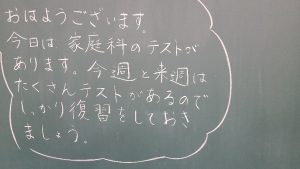 おはようございます。
今日は、家庭科のテストが
あります。今週と来週は
たくさんテストがあるので
しっかり復習をしておき
ましょう。